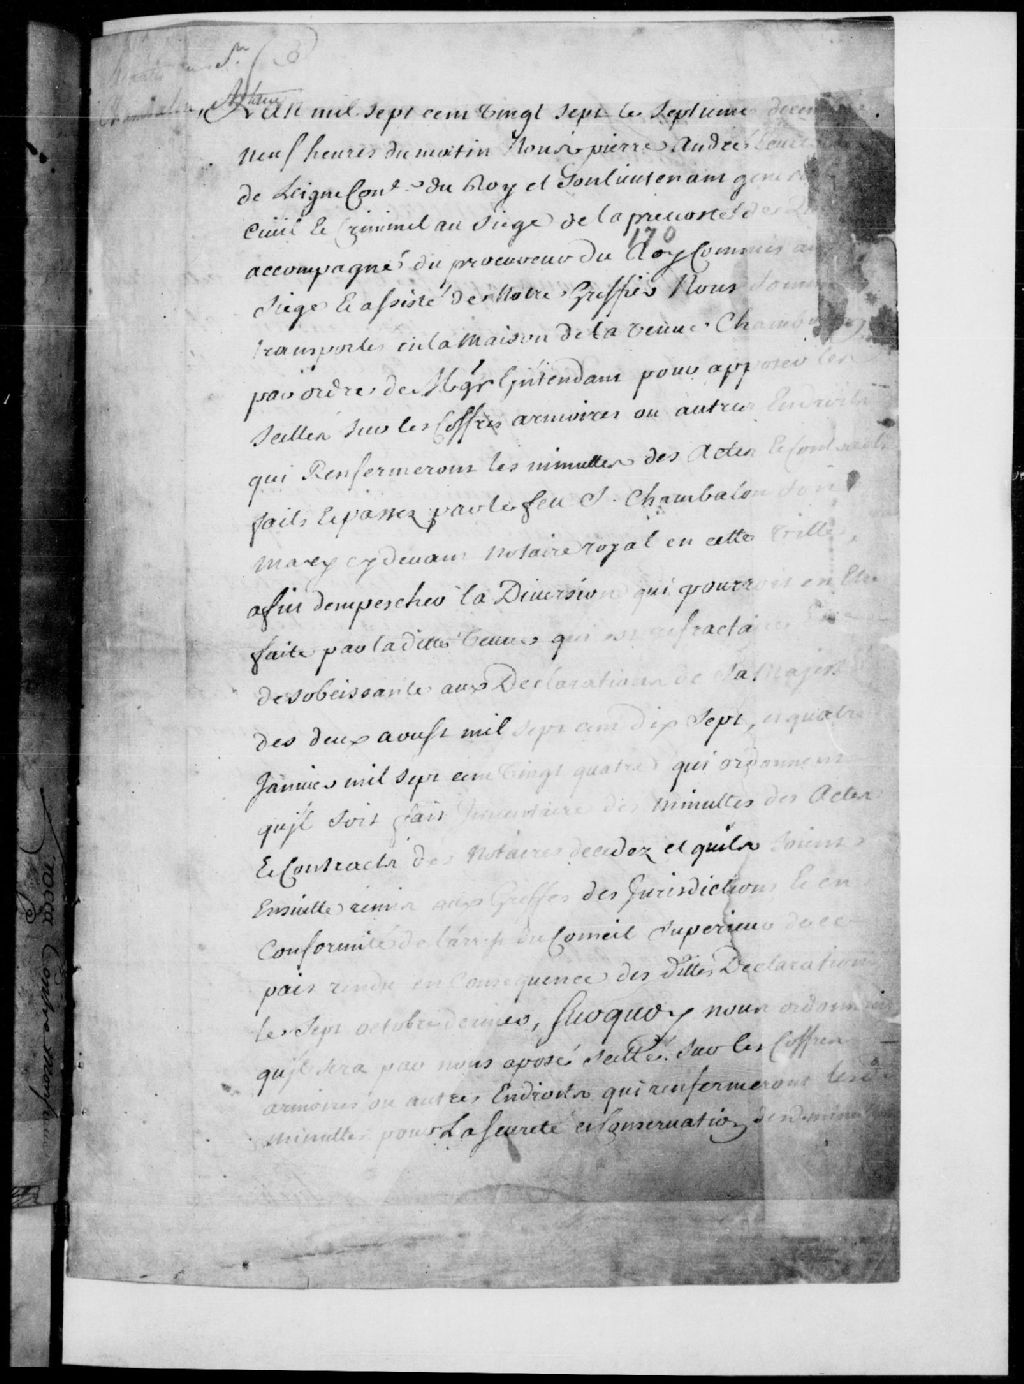 Sr
Chambalon, Notaire
L'an mil sept cent vingt sept le septieme decembre
neuf heures du matin Nous pierre André
de Leigne Conr du Roy et Son lieutenant general
Civil & Criminel au siege de la prevosté de
170
accompagné du procureur du Roy Commis au
Siege & assisté de Notre Greffier Nous Sommes
transportés en la Maison de la veuve Chambalon
par ordre de Mgr L'intendant pour apposer les
scellés sur les Coffres armoires ou autres Endroits
qui Renfermeront les minuttes des Actes & Contracts
faits & passez par le feu Sr Chambalon Son
mary cy devant Notaire royal en cette Ville,
afin d'empescher la Diversion qui pourroit en Etre
faite par la ditte Veuve qui est refractaire &
desobeissante aux Declarations de Sa Majesté
des deux aoust mil sept cent dix Sept, et quatre
Janvier mil sept cent vingt quatre qui ordonnent
qu'il soit fait Inventaire des minuttes des Actes
& Contracts des Notaires decedez et qu'ils soient
Ensuitte remis aux Greffes des Jurisdictions & en
Conformité de l'arrest du Conseil Superieur de ce
pais rendu en Consequence des dittes Declarations
le Sept octobre dernier, Surquoy nous ordonnons
qu'il sera par nous aposé scellé sur les Coffres
armoires ou autres Endroits qui renfermeront lesd.
minuttes pour La seureté et Conservation desd. minuttes